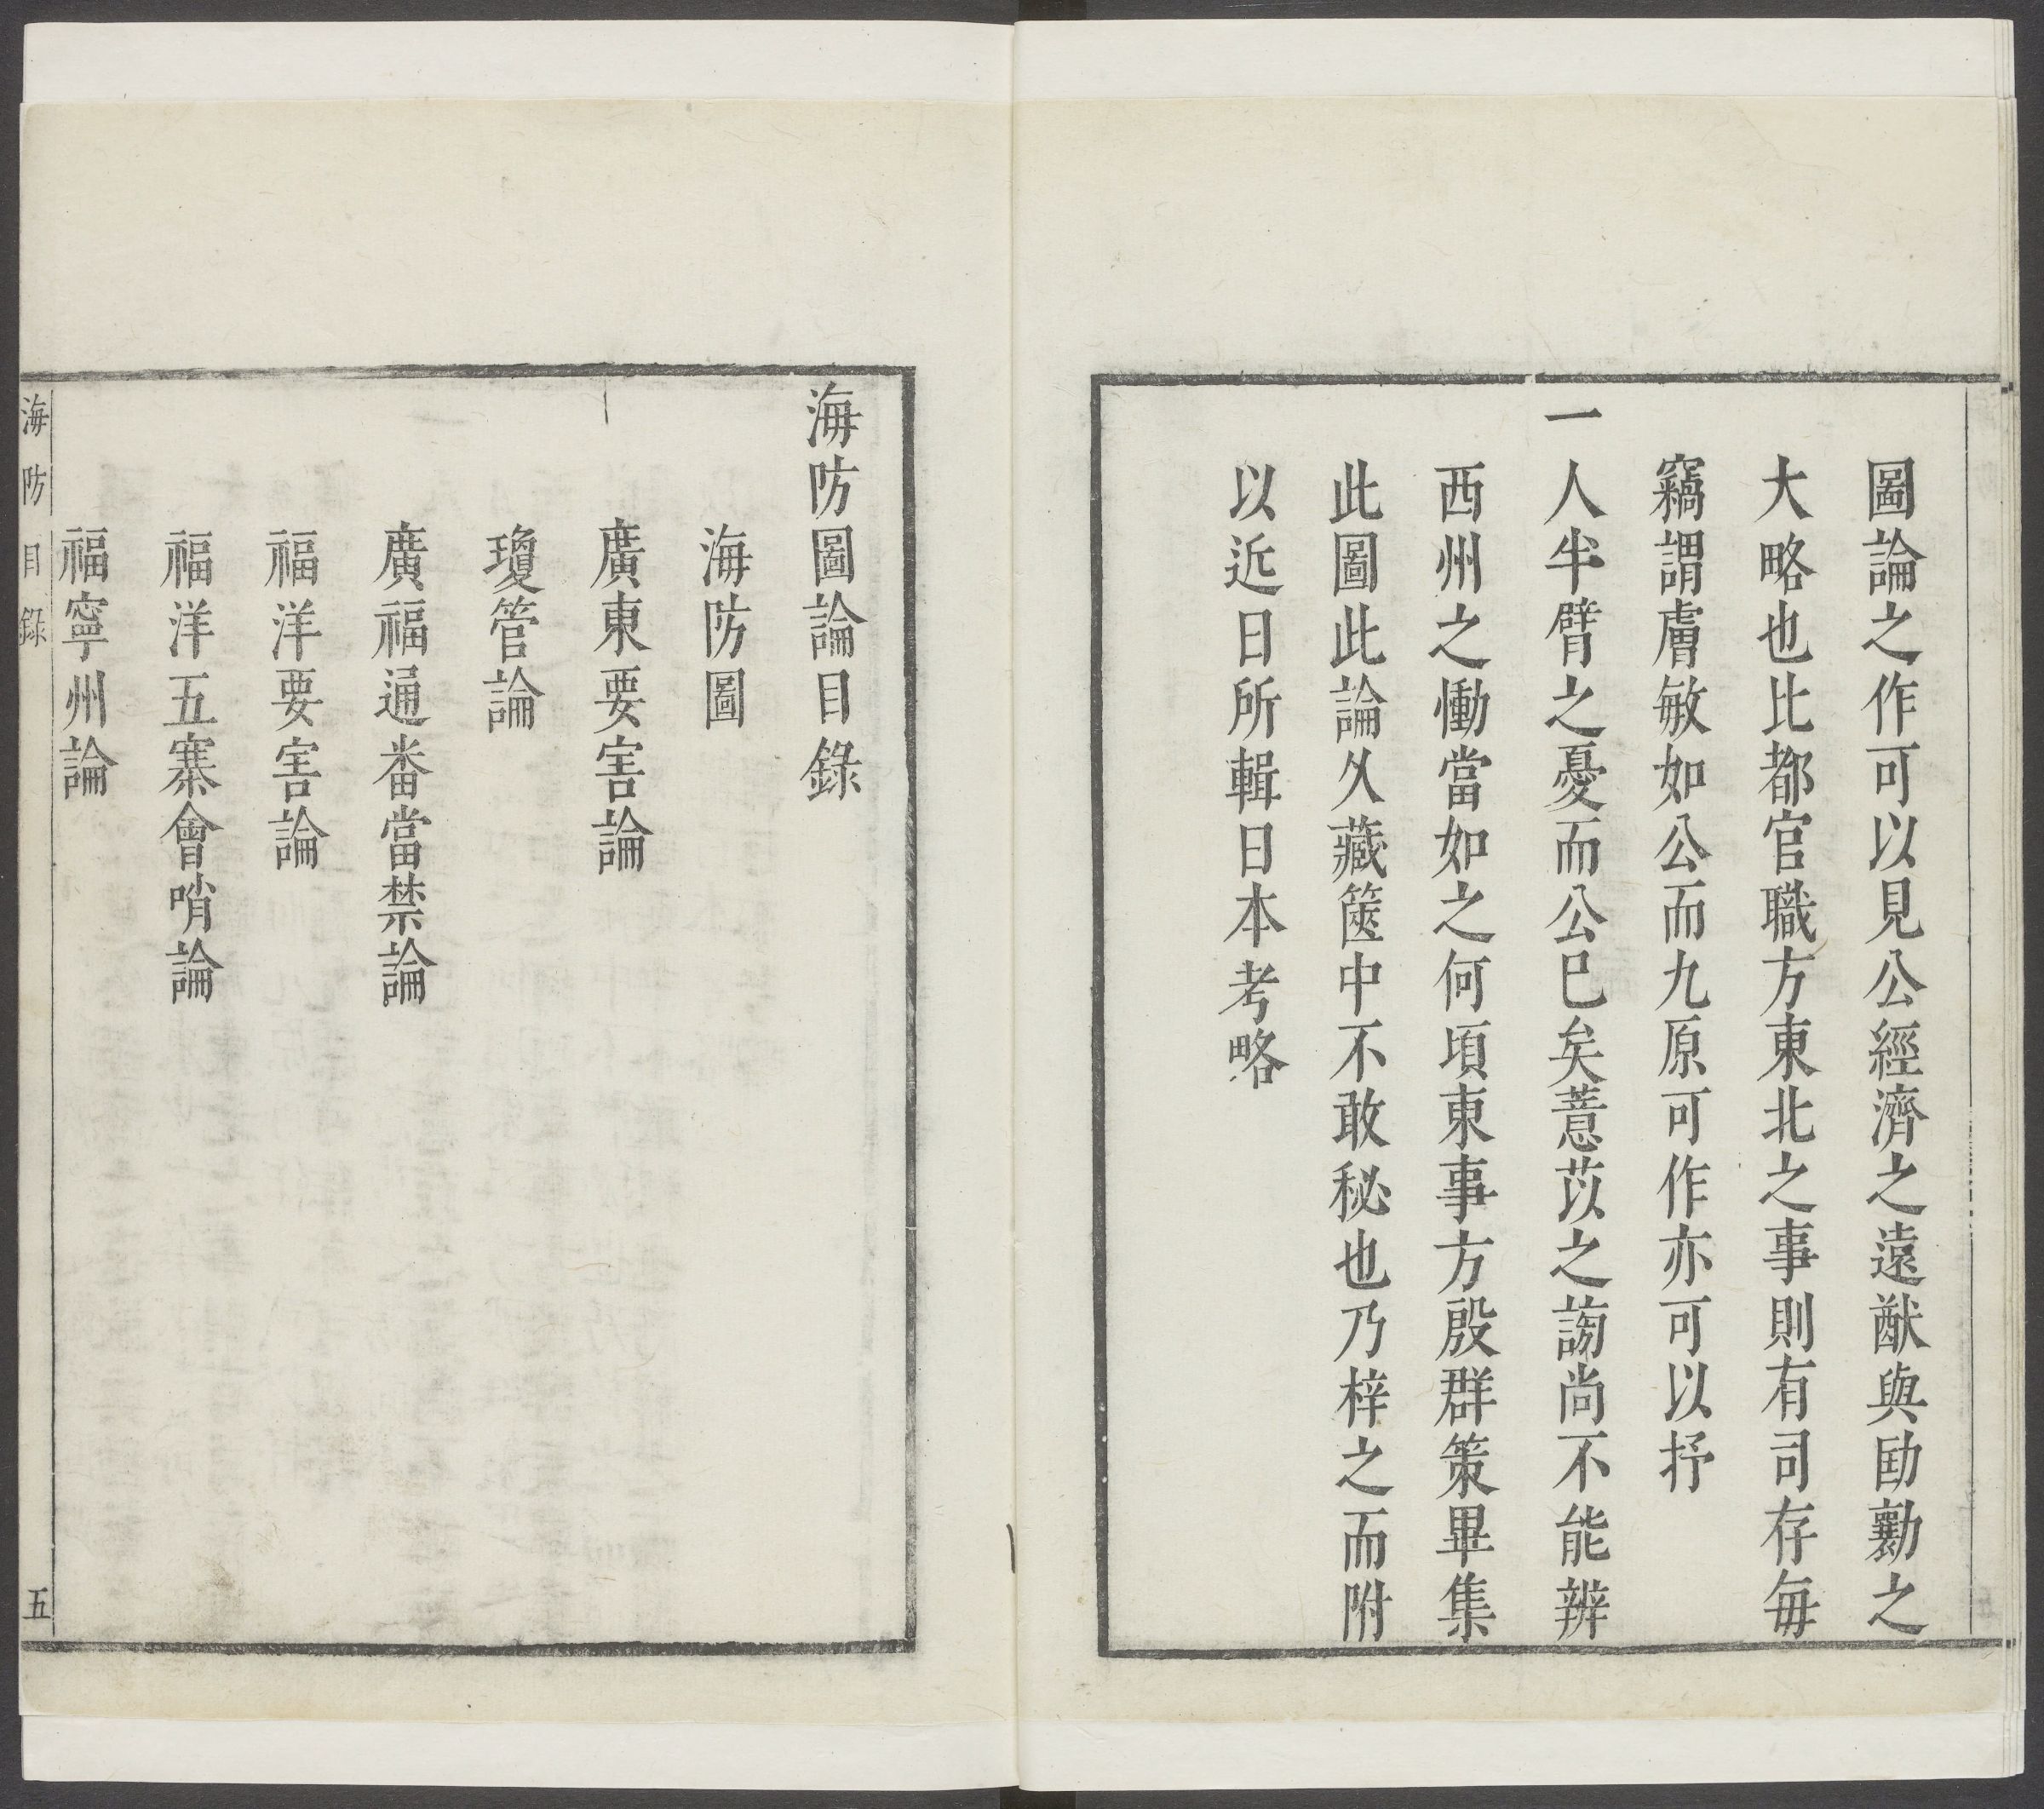 圖論之作可以見公經濟之遠猷與勛勷之
大略也比都官職方東北之事則有司存每
竊謂膚敏如公而九原可作亦可以抒
一人半臂之憂而公已矣薏苡之謗尚不能辨
西州之慟當如之何頃東事方殷群策畢集
此圖此論久藏篋中不敢秘也乃梓之而附
以近日所輯日本考略
海防圖論目錄
海防圖
廣東要害論
瓊管論
廣福通番當禁論
福洋要害論
福洋五寨會哨論
福寧州論
海防目錄
五